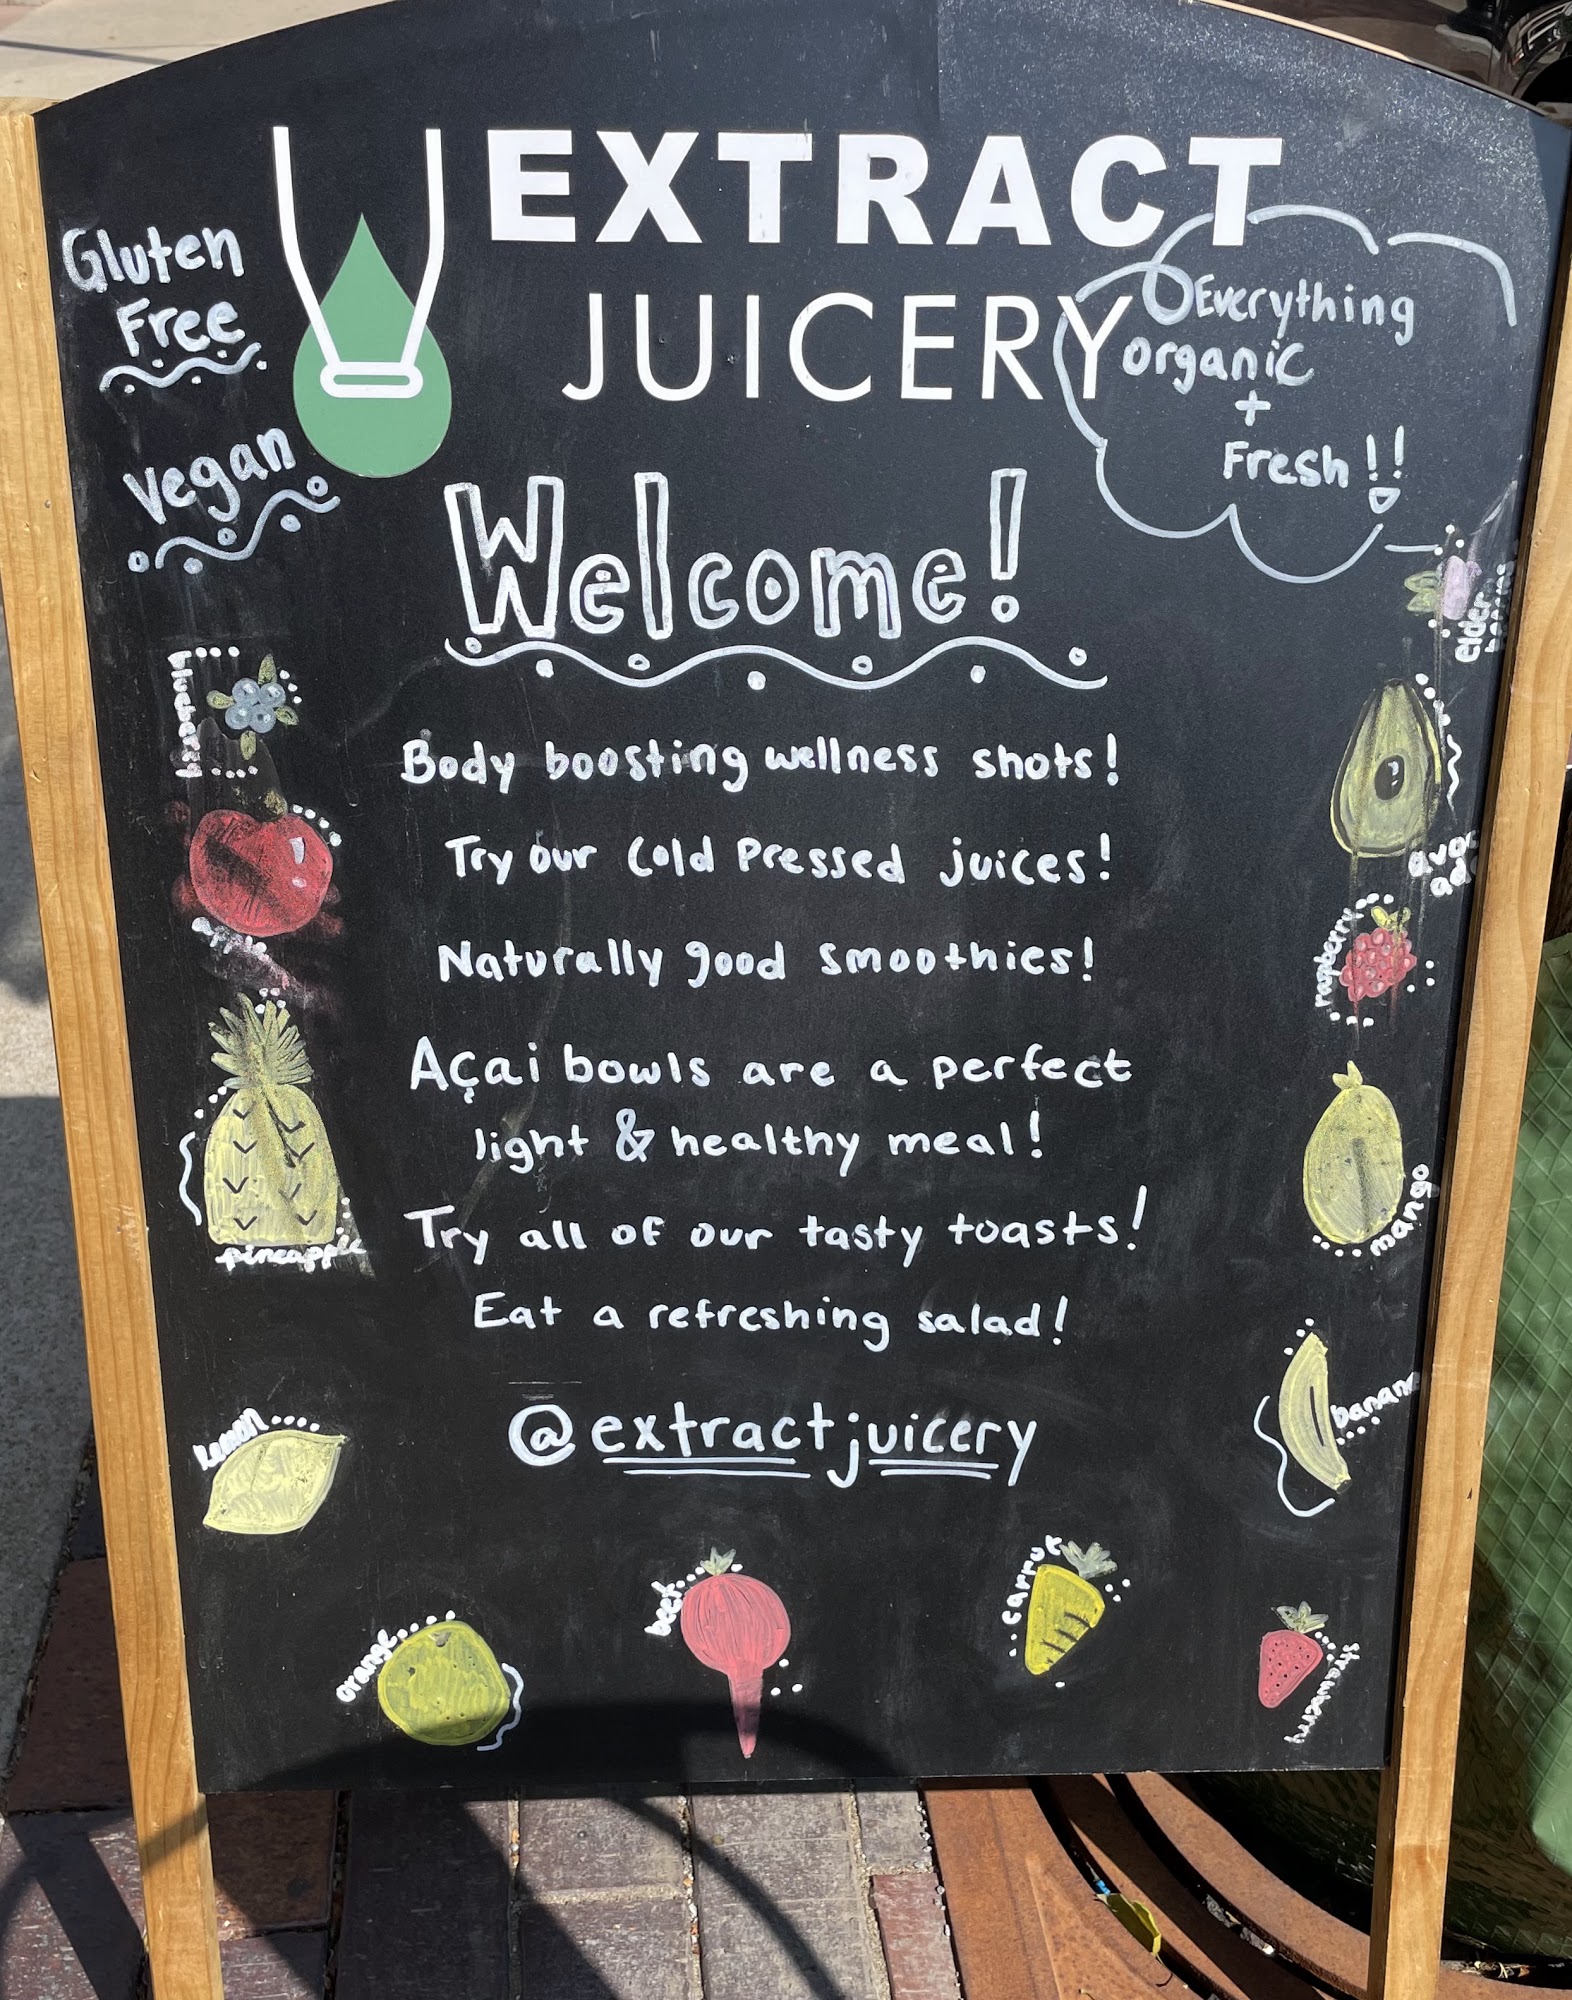 EXTRACT
JUICERY
Gluten
Free
Vegan
Everything
organic
+
Fresh!!
Welcome!
Body boosting wellness shots!
Try our Cold Pressed juices!
Naturally good smoothies!
Açai bowls are a perfect
light & healthy meal!
Try all of our tasty toasts!
Eat a refreshing salad!
@extractjuicery
apple
pineapple
lemon
orange
beet
carrot
strawberry
banana
mango
raspberry
avoc
ado
elder